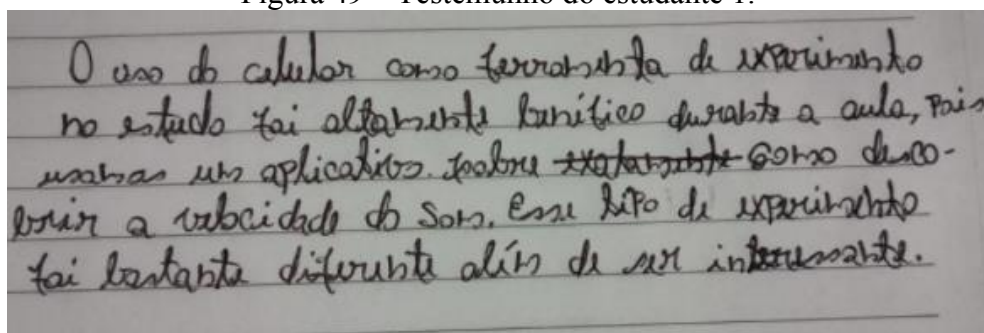 Figura 49 – Testemunho do estudante 1.
O uso do celular como ferramenta de experimento
no estudo foi altamente benífico durante a aula, pois
usamos um aplicativo sobre exatamente como desco-
brir a velocidade do som. Esse tipo de experimento
foi bastante diferente além de ser interessante.